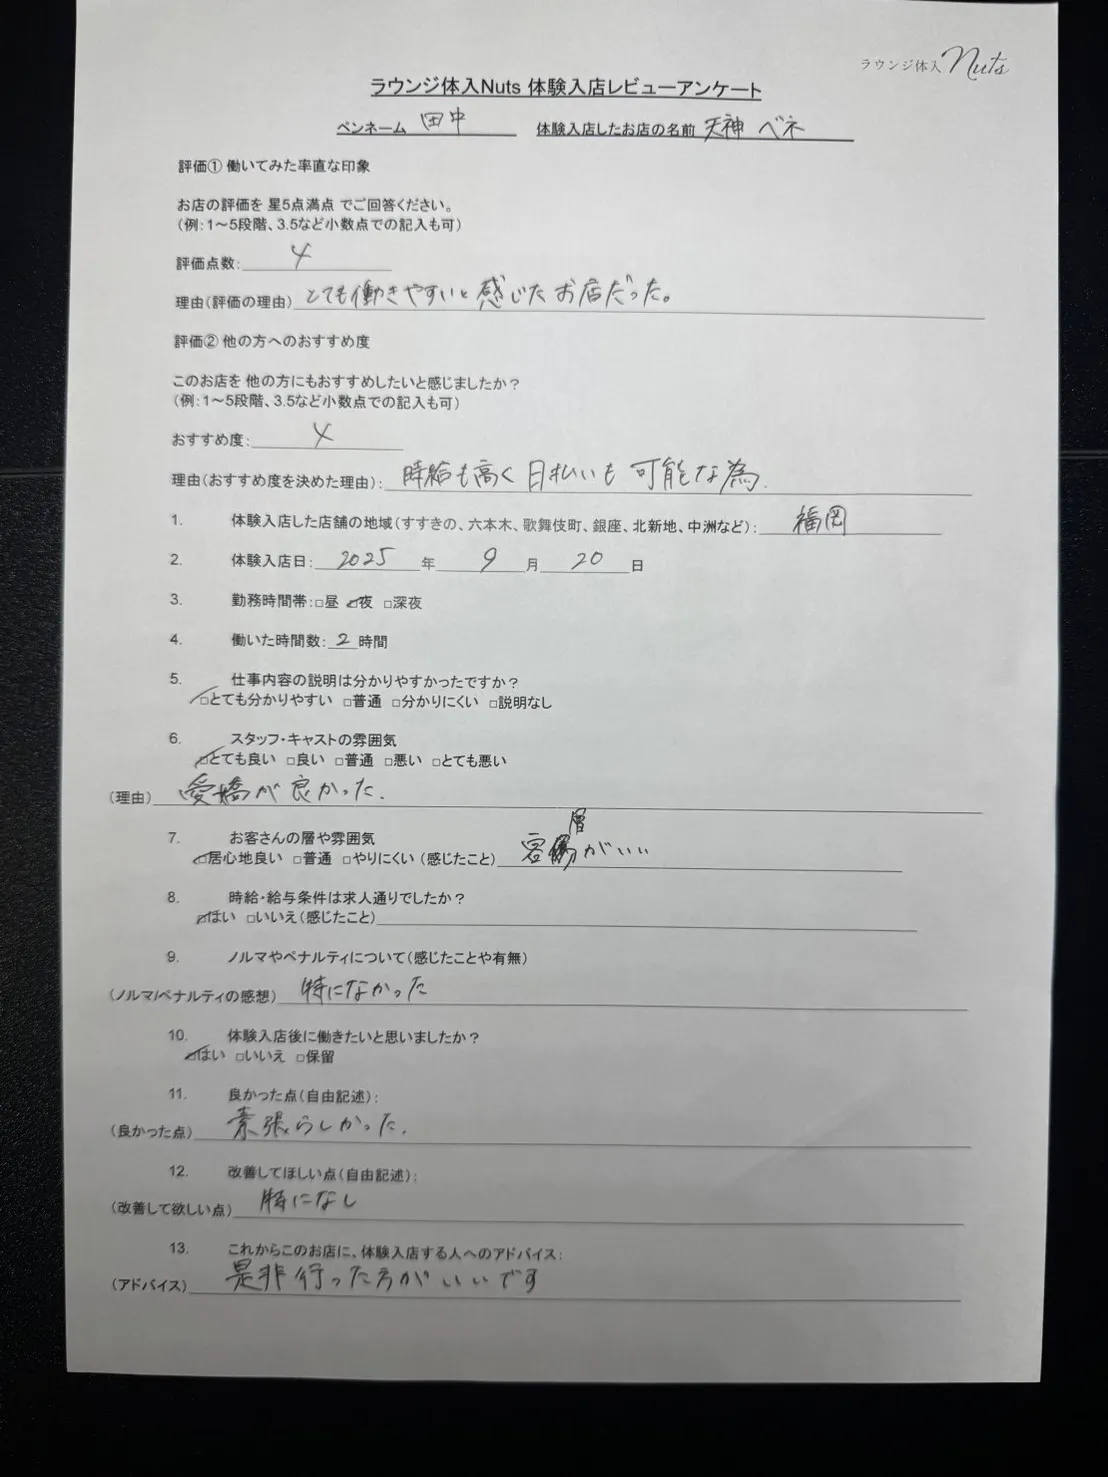 ラウンジ体入 Nuts
ラウンジ体入Nuts 体験入店レビューアンケート
ペンネーム 田中 体験入店したお店の名前 天神 ベネ
評価① 働いてみた率直な印象
お店の評価を 星5点満点 でご回答ください。
(例:1～5段階、3.5など小数点での記入も可)
評価点数: 4
理由(評価の理由) とても働きやすいと感じたお店だった。
評価② 他の方へのおすすめ度
このお店を 他の方にもおすすめしたいと感じましたか?
(例:1～5段階、3.5など小数点での記入も可)
おすすめ度: 4
理由(おすすめ度を決めた理由): 時給も高く日払いも可能な為.
1. 体験入店した店舗の地域(すすきの、六本木、歌舞伎町、銀座、北新地、中洲など): 福岡
2. 体験入店日: 2025 年 9 月 20 日
3. 勤務時間帯:□昼 ☑夜 □深夜
4. 働いた時間数: 2 時間
5. 仕事内容の説明は分かりやすかったですか?
☑とても分かりやすい □普通 □分かりにくい □説明なし
6. スタッフ・キャストの雰囲気
☑とても良い □良い □普通 □悪い □とても悪い
(理由) 愛嬌が良かった.
7. お客さんの層や雰囲気
☑居心地良い □普通 □やりにくい (感じたこと) 客層がいい
8. 時給・給与条件は求人通りでしたか?
☑はい □いいえ(感じたこと)
9. ノルマやペナルティについて(感じたことや有無)
(ノルマ/ペナルティの感想) 特になかった
10. 体験入店後に働きたいと思いましたか?
☑はい □いいえ □保留
11. 良かった点(自由記述):
(良かった点) 素張らしかった.
12. 改善してほしい点(自由記述):
(改善して欲しい点) 特になし
13. これからこのお店に、体験入店する人へのアドバイス:
(アドバイス) 是非行った方がいいです